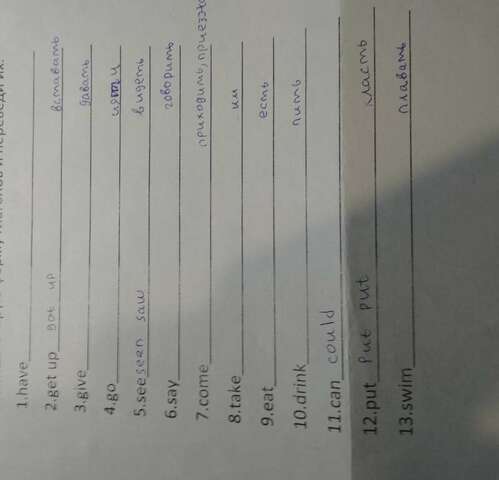 форму глаголов и переведи их.
1.have
2.get up got up вставать
3.give давать
4.go идти
5.see seen saw видеть
6.say говорить
7.come приходить, приезжа
8.take им
9.eat есть
10.drink пить
11.can could
12.put put put класть
13.swim плавать